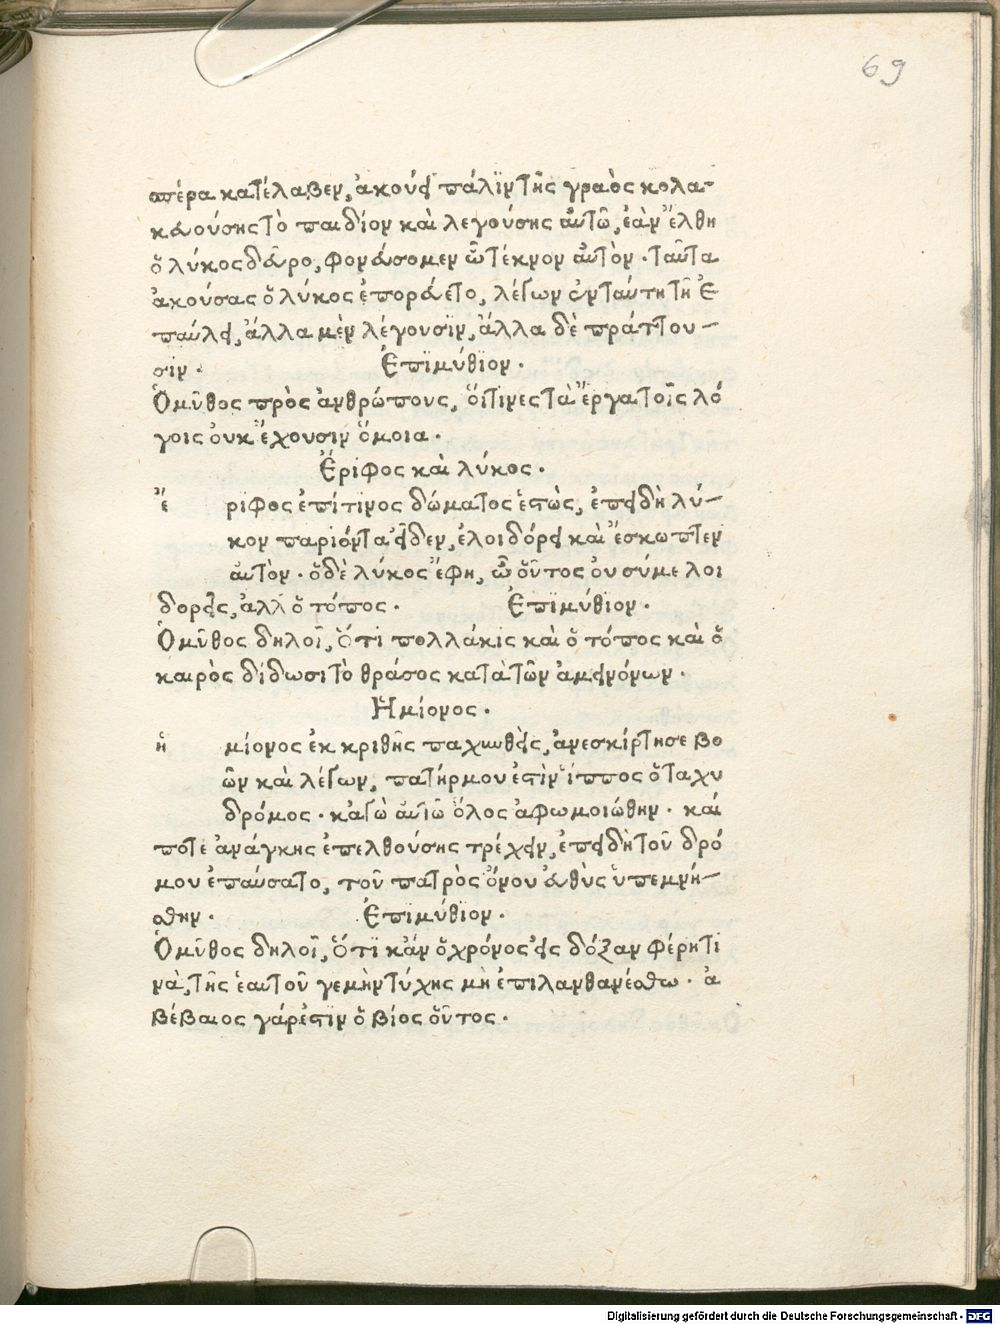 69
σπέρα κατέλαβεν, ἀκούει πάλϊν τῆς γραὸς κολα-
κευούσης τὸ παιδίον καὶ λεγούσης αὐτῶ, ἐὰν ἔλθη
ὁ λύκος δεῦρο, φονεύσομεν ὦ τέκνον αὐτὸν · ταῦτα
ἀκούσας ὁ λύκος ἐπορεύετο, λέγων ἐν ταύτη τῆ ἐ
παύλει, ἄλλα μὲν λέγουσϊν, ἄλλα δὲ πράττου-
σϊν · Ἐπϊμύθϊον ·
Ὁ μῦθος πρὸς ἀνθρώπους, οἵτϊνες τὰ ἔργα τοῖς λό
γοις οὐκ ἔχουσϊν ὅμοια ·
Ἔρϊφος καὶ λύκος ·
ἔ ρϊφος ἐπί τϊνος δώματος ἑστὼς, ἐπειδὴ λύ-
κον παριόντα εἶδεν, ἐλοιδόρει καὶ ἔσκωπτεν
αὐτὸν · ὁ δὲ λύκος ἔφη, ὦ οὗτος οὐ σύ με λοι
δορεῖς, ἀλλ ὁ τόπος · Ἐπϊμύθϊον ·
Ὁ μῦθος δηλοῖ, ὅτϊ πολλάκϊς καὶ ὁ τόπος καὶ ὁ
καιρὸς δίδωσι τὸ θράσος κατὰ τῶν ἀμεινόνων ·
Ἡμίονος ·
ἡ μίονος ἐκ κριθῆς παχυνθεῖς, ἀνεσκίρτησε βο
ῶν καὶ λέγων, πατήρ μου ἐστὶν ἵππος ὁ ταχυ
δρόμος · κἀγὼ αὐτῶ ὅλος ἀφωμοιώθην · καί
ποτε ἀνάγκης ἐπελθούσης τρέχειν, ἐπειδὴ τοῦ δρό
μου ἐπαύσατο, τοῦ πατρὸς ὄνου εὐθὺς ὑπεμνή-
σθην · Ἐπϊμύθϊον ·
Ὁ μῦθος δηλοῖ, ὅτϊ κἂν ὁ χρόνος εἰς δόξαν φέρη τι
νὰ, τῆς ἑαυτοῦ γε μὴν τύχης μὴ ἐπιλανθανέσθω · ἀ
βέβαιος γάρ ἐστϊν ὁ βίος οὗτος ·
Digitalisierung gefördert durch die Deutsche Forschungsgemeinschaft · DFG